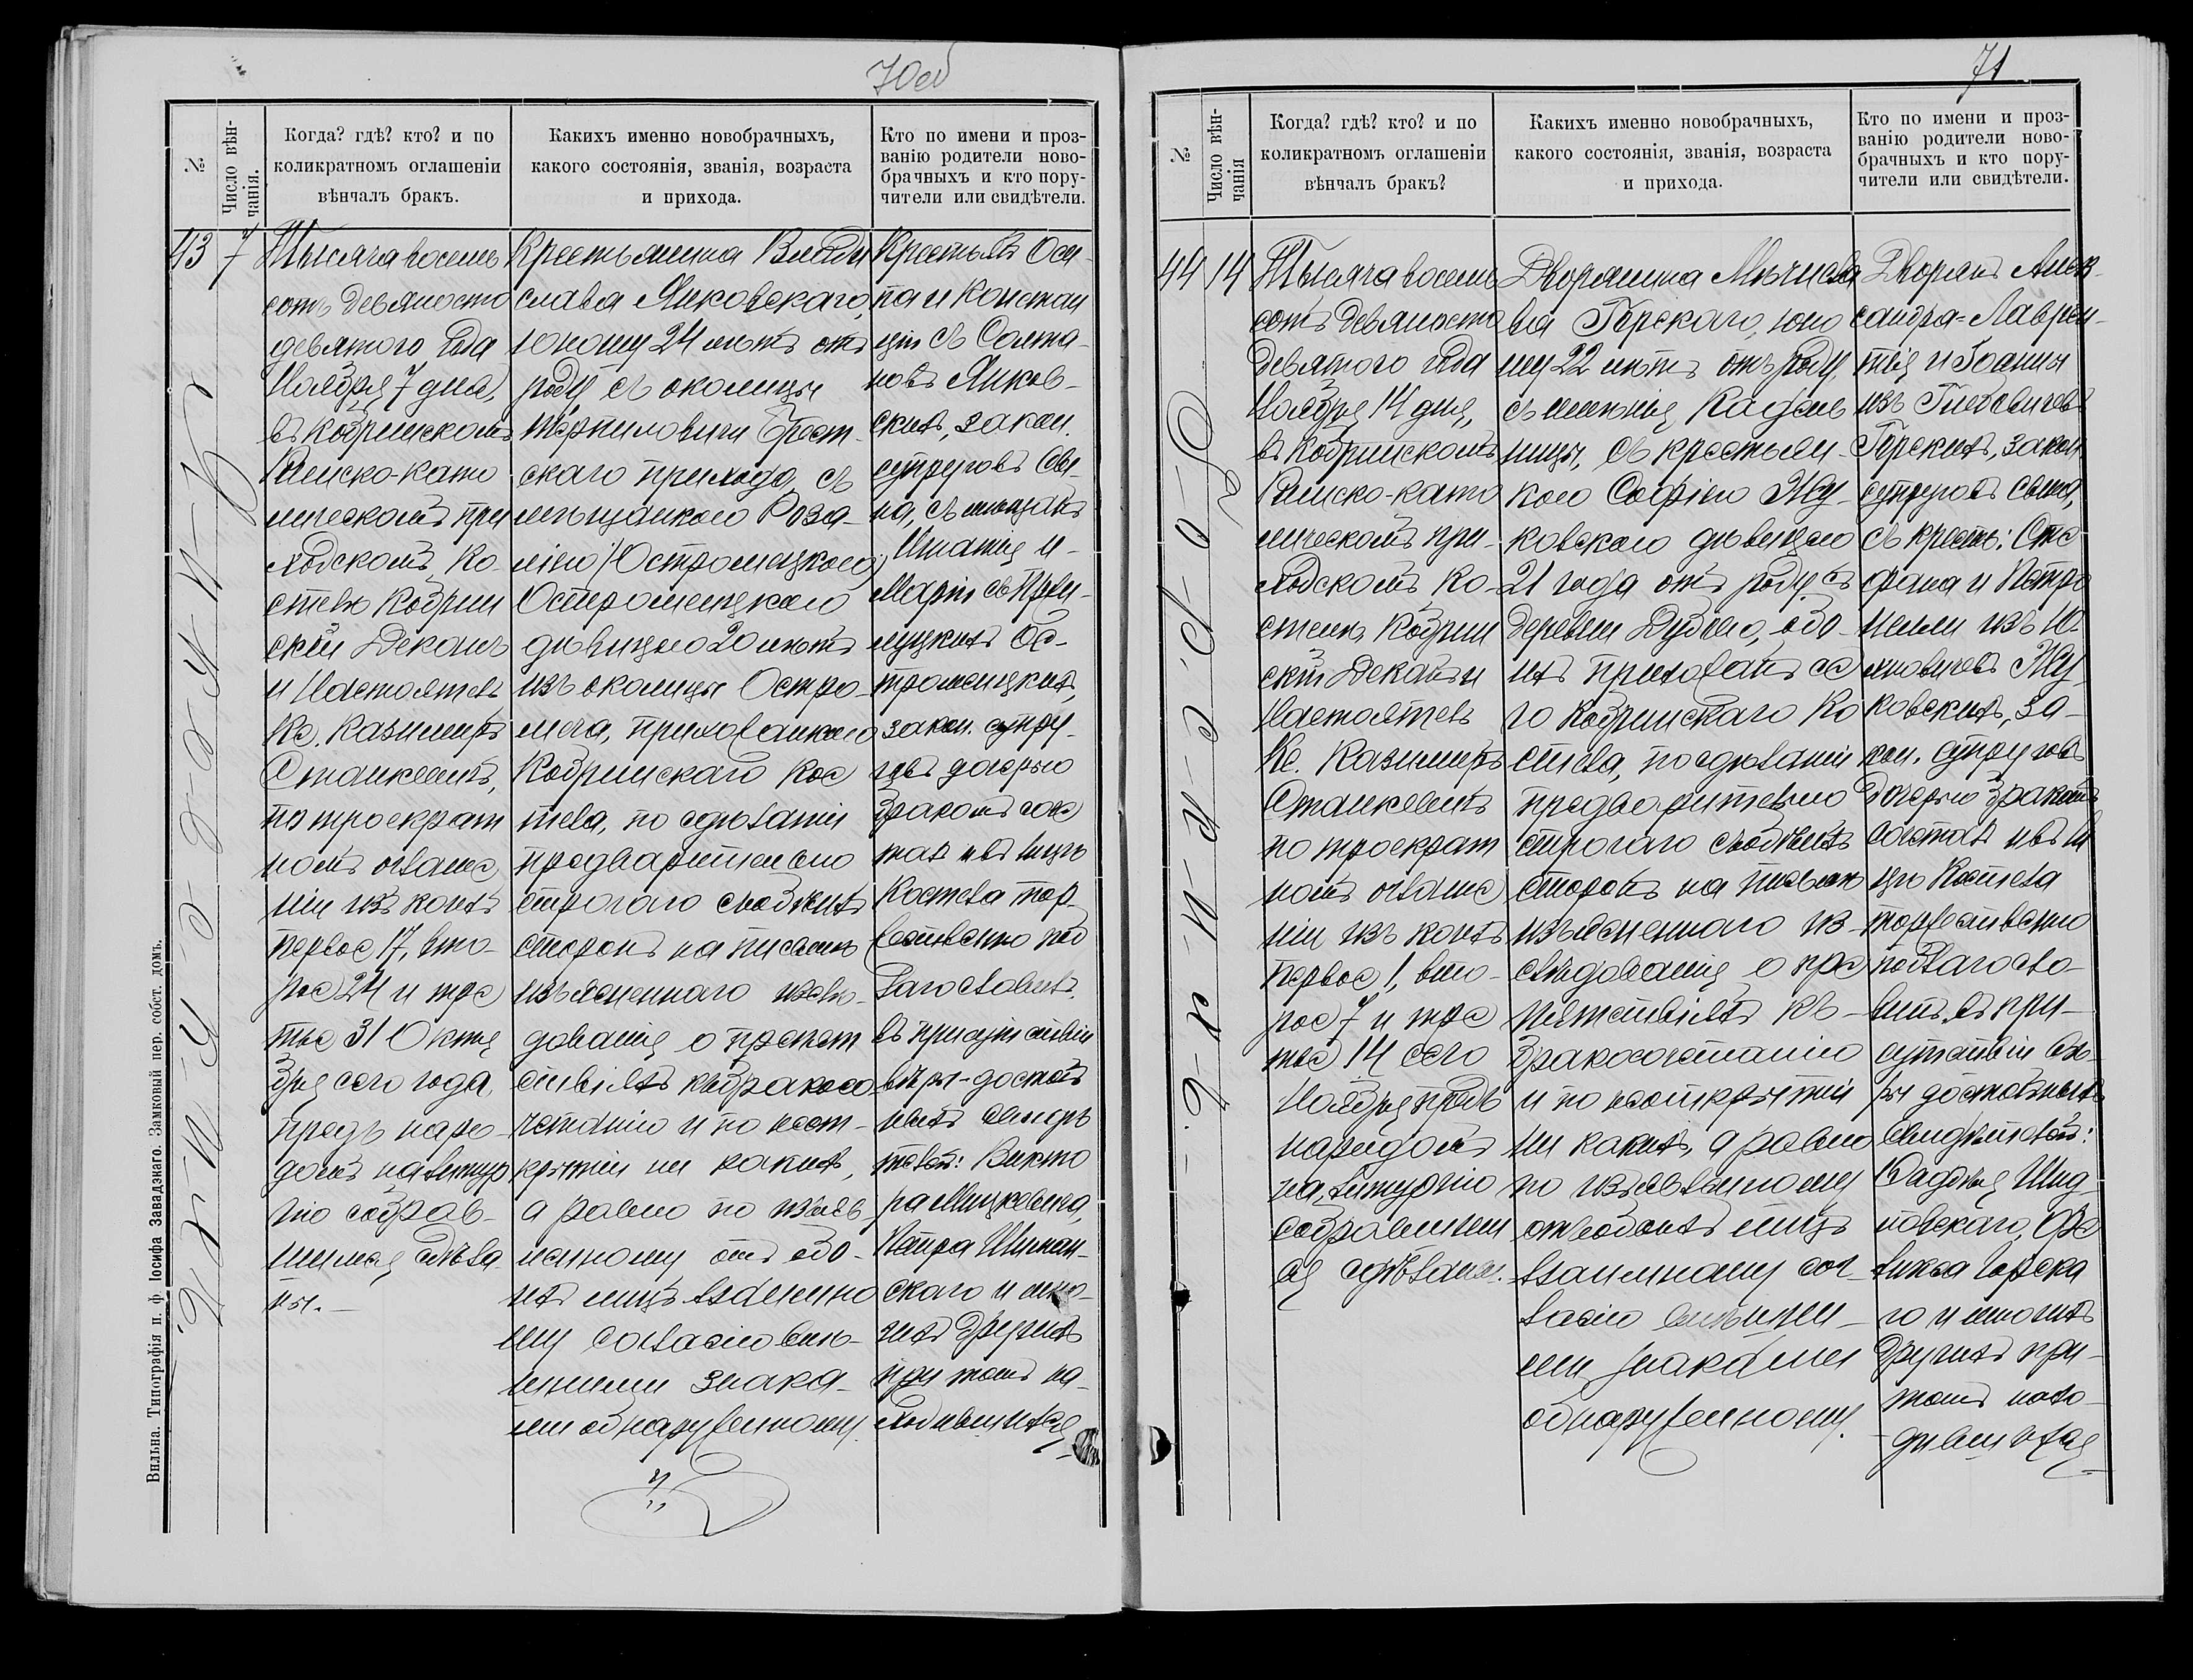 70об
№
Число вѣн-
чанія.
Когда? гдѣ? кто? и по
коликратномъ оглашеніи
вѣнчалъ бракъ.
Какихъ именно новобрачныхъ,
какого состоянія, званія, возраста
и прихода.
Кто по имени и проз-
ванію родители ново-
брачныхъ и кто пору-
чители или свидѣтели.
43
7
Тысяча восемь
сотъ девяносто
девятого года
Ноября 7 дня,
въ Кобринскомъ
Римско-като
лическомъ при
ходскомъ Ко-
стелѣ Кобрин
скій Деканъ
и Настоятель
Кс. Казимиръ
Станкевичъ,
по троекрат
номъ оглаше
ніи изъ коихъ
первое 17, вто-
рое 24 и тре
тье 31 Октя
бря сего года
предъ наро-
домъ на литур
гію собрав-
шимся сдѣла
ны.-
Крестьянина Влади
слава Янковскаго,
юношу 24 лѣтъ отъ
роду съ околицы
Терпиловичи Брест-
скаго прихода, съ
мѣщанкою Роза-
ліею (Юстромецкою)
Остромецкою
дѣвицею 20 лѣтъ
изъ околицы Остро-
меча, прихожанкою
Кобринскаго Кос
тела, по сдѣланіи
предварительно
строгаго съ обоихъ
сторонъ на письмѣ
изъясненнаго изслѣ-
дованія о препят
ствіяхъ къ бракосо-
четанію и по неот-
крытіи ни какихъ,
а равно по изъяв-
ленному отъ обо-
ихъ лицъ взаимно
му согласію внѣ-
шними знака-
ми обнаруженному.
Крестьянъ Оси-
па и Констан
ціи съ Солта-
новъ Янков-
скихъ, закон.
супруговъ сы-
на, съ мѣщанъ
Игнатія и
Маріи съ
Ос-
тромецкихъ,
закон. супру-
говъ дочерью
бракомъ соче
талъ и въ лицѣ
Костела тор-
жественно поб
лагословилъ.
въ присутствіи
вѣры-достой
ныхъ свидѣ
телей: Викто
ра Мицкевича,
Петра
скаго и мно-
гихъ другихъ
при томъ на-
ходившихся
Вильна. Типографія п. ф. Іосифа Завадзкаго. Замковый пер. собст. домъ.
71
№
Число вѣн-
чанія
Когда? гдѣ? кто? и по
коликратномъ оглашеніи
вѣнчалъ бракъ?
Какихъ именно новобрачныхъ,
какого состоянія, званія, возраста
и прихода.
Кто по имени и проз-
ванію родители ново-
брачныхъ и кто пору-
чители или свидѣтели.
44
14
Тысяча восемь
сотъ девяносто
девятого года
Ноября 14 дня,
въ Кобринскомъ
Римско-като
лическомъ при-
ходскомъ Ко-
стелѣ Кобрин
скій Деканъ и
Настоятель
Кс. Казимиръ
Станкевичъ
по троекрат
номъ оглаше
ніи изъ коихъ
первое 1, вто-
рое 7 и тре
тое 14 сего
Ноября предъ
народомъ
на литургію
собравшим
ся сдѣланы.
Дворянина Мечисла
ва Герскаго, юно
шу 22 лѣтъ отъ роду,
съ имѣнія
съ крестьян-
кою Софіею Жу-
ковскою дѣвицею
21 года отъ роду съ
деревни Дубово, обо-
ихъ прихожанъ се
го Кобринскаго Ко
стела, по сдѣланіи
предварительно
строгаго съ обоихъ
сторонъ на письмѣ
изъясненнаго из-
слѣдованія о пре
пятствіяхъ къ-
бракосочетанію
и по неоткрытіи
ни какихъ, а равно
по изъявленному
отъ обоихъ лицъ
взаимному сог-
ласію внѣшни-
ми знаками
обнаруженному.
Дворянъ Алек-
сандра-Лаврен-
тія и Іоанны
изъ Глебовичевъ
Герскихъ, закон
супруговъ сына,
съ крестъ: Сте
фана и Петро
нели изъ Ю-
хновичевъ Жу
ковскихъ, за-
кон. супруговъ
дочерью бракомъ
сочеталъ и въ ли
цѣ Костела
торжественно
поблагосло-
вилъ въ при-
сутствіи вѣ-
ры достойныхъ
свидѣтелей:
Фадѣя
Фе
ликса Горска
го и многихъ
другихъ при-
томъ нахо-
дившихся